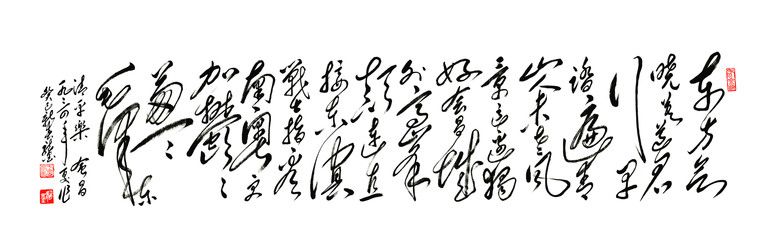 东方欲
晓莫道君
行早
踏遍青
山人未老风
景这边独
好会昌城
外高峰
颠连直
接东溟
战士指看
南粤更
加郁々
葱々
毛泽东
清平乐 会昌
一九三四年夏作
癸巳